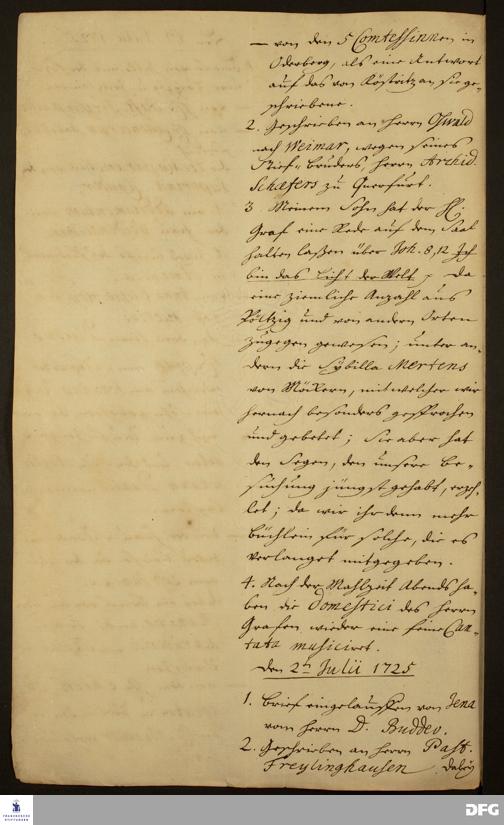 — von den 5 Comtessinnen in
Oderberg, als eine Antwort
auf das von Köstritz an sie ge-
schriebene.
2. Geschrieben an Herrn Osswald
nach Weimar, wegen seines
Stief-Bruders, Herrn Archid.
Schaefers zu Querfurt.
3 Meinem Sohn hat der H.
Graf eine Rede auf dem Saal
halten laßen über Joh. 8,12 Ich
bin das Licht der Welt; da
eine ziemliche Anzahl aus
Pöltzig und von andern Orten
zugegen gewesen; unter an-
dern die Sybilla Mertens
von Möckern, mit welcher wir
hernach besonders gesprochen
und gebetet; Sie aber hat
den Segen, den unsere Be-
suchung jüngst gehabt, erzeh-
let; da wir ihr denn mehr
Büchlein für solche, die es
verlanget mitgegeben.
4. Nach der Mahlzeit Abends ha-
ben die Domestici des Herrn
Grafen wieder eine feine Can-
tata musiciret.
Den 2ten Julii 1725
1. Brief eingelauffen von Jena
vom Herrn D. Buddeo.
2. Geschrieben an Herrn Past.
Freylinghausen
FRANCKESCHE
STIFTUNGEN
DFG